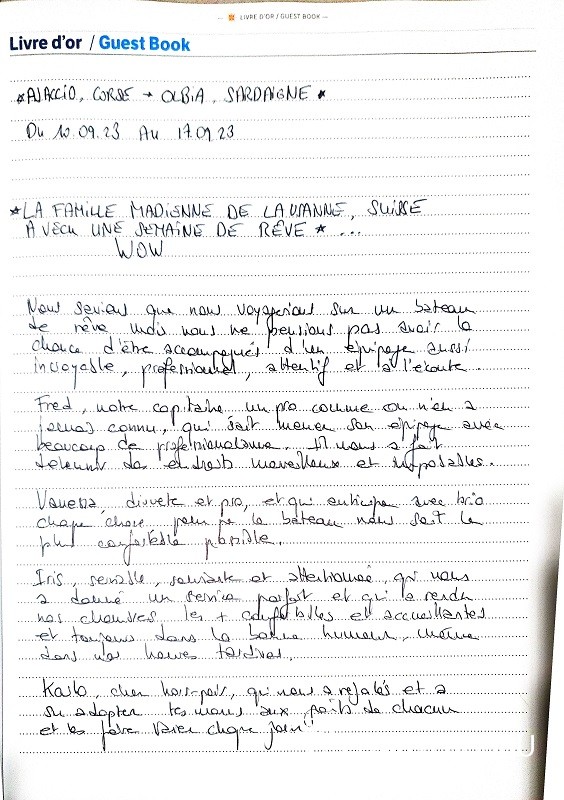 — LIVRE D'OR / GUEST BOOK —
Livre d'or / Guest Book
*AJACCIO, CORSE → OLBIA, SARDAIGNE *
DU 10.09.23 AU 17.09.23
*LA FAMILLE MADIENNE DE LAUSANNE, SUISSE
A VÉCU UNE SEMAINE DE RÊVE * ...
WOW
Nous savions que nous voyagerions sur un bateau
de rêve mais nous ne pensions pas avoir la
chance d'être accompagnés d'un équipage aussi
incroyable, professionnel, attentif et à l'écoute.
Fred, notre capitaine un pro comme on n'en a
jamais connu, qui sait mener son équipage avec
beaucoup de professionnalisme. Il nous a fait
découvrir des endroits merveilleux et
Vanessa, discrète et pro, et qui anticipe avec brio
chaque chose pour que le bateau nous soit le
plus confortable possible.
Iris, serviable, souriante et attentionnée, qui nous
a donné un service parfait et qui a rendu
nos chambres les + confortables et accueillantes
et toujours dans la bonne humeur, même
dans nos heures tardives.
Karlo, chef hors-pair, qui nous a régalés et a
su adapter les menus aux goûts de chacun
et les faire varier chaque jour!!